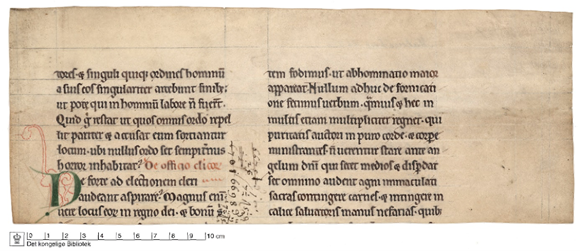 tores· & singuli quiq; ordines hominũ
a suis eos singulariter arcebunt finib;
ut pote qui in hominũ labore ñ fuer̃t·
Quid g̊ restat ut quos omnis ordo repel
lit pariter & accusat eum sortiantur
locum· ubi nullus ordo set sempitnus
horror inhabitat? De officio
De forte ad electionem cleri
audeant aspirare? Magnus eni
uere locus eor in regno dei· & bonũ
rem fodimus· ut abhominatio maior
appareat· Nullum adhuc de fornicati
one fecimus uerbum· q̃muis & hec in
multis etiam multipliciter regnet· qui
puritatis auctori in puro corde & corpe
ministrare ñ uerentur stare ante an
gelum dñi qui secet medios & dispdat
set omnino audent agni immaculati
sacras contingere carnes· & intingere in
calice saluatoris manus nefarias· quib;
0 1 2 3 4 5 6 7 8 9 10 cm
Det kongelige Bibliotek